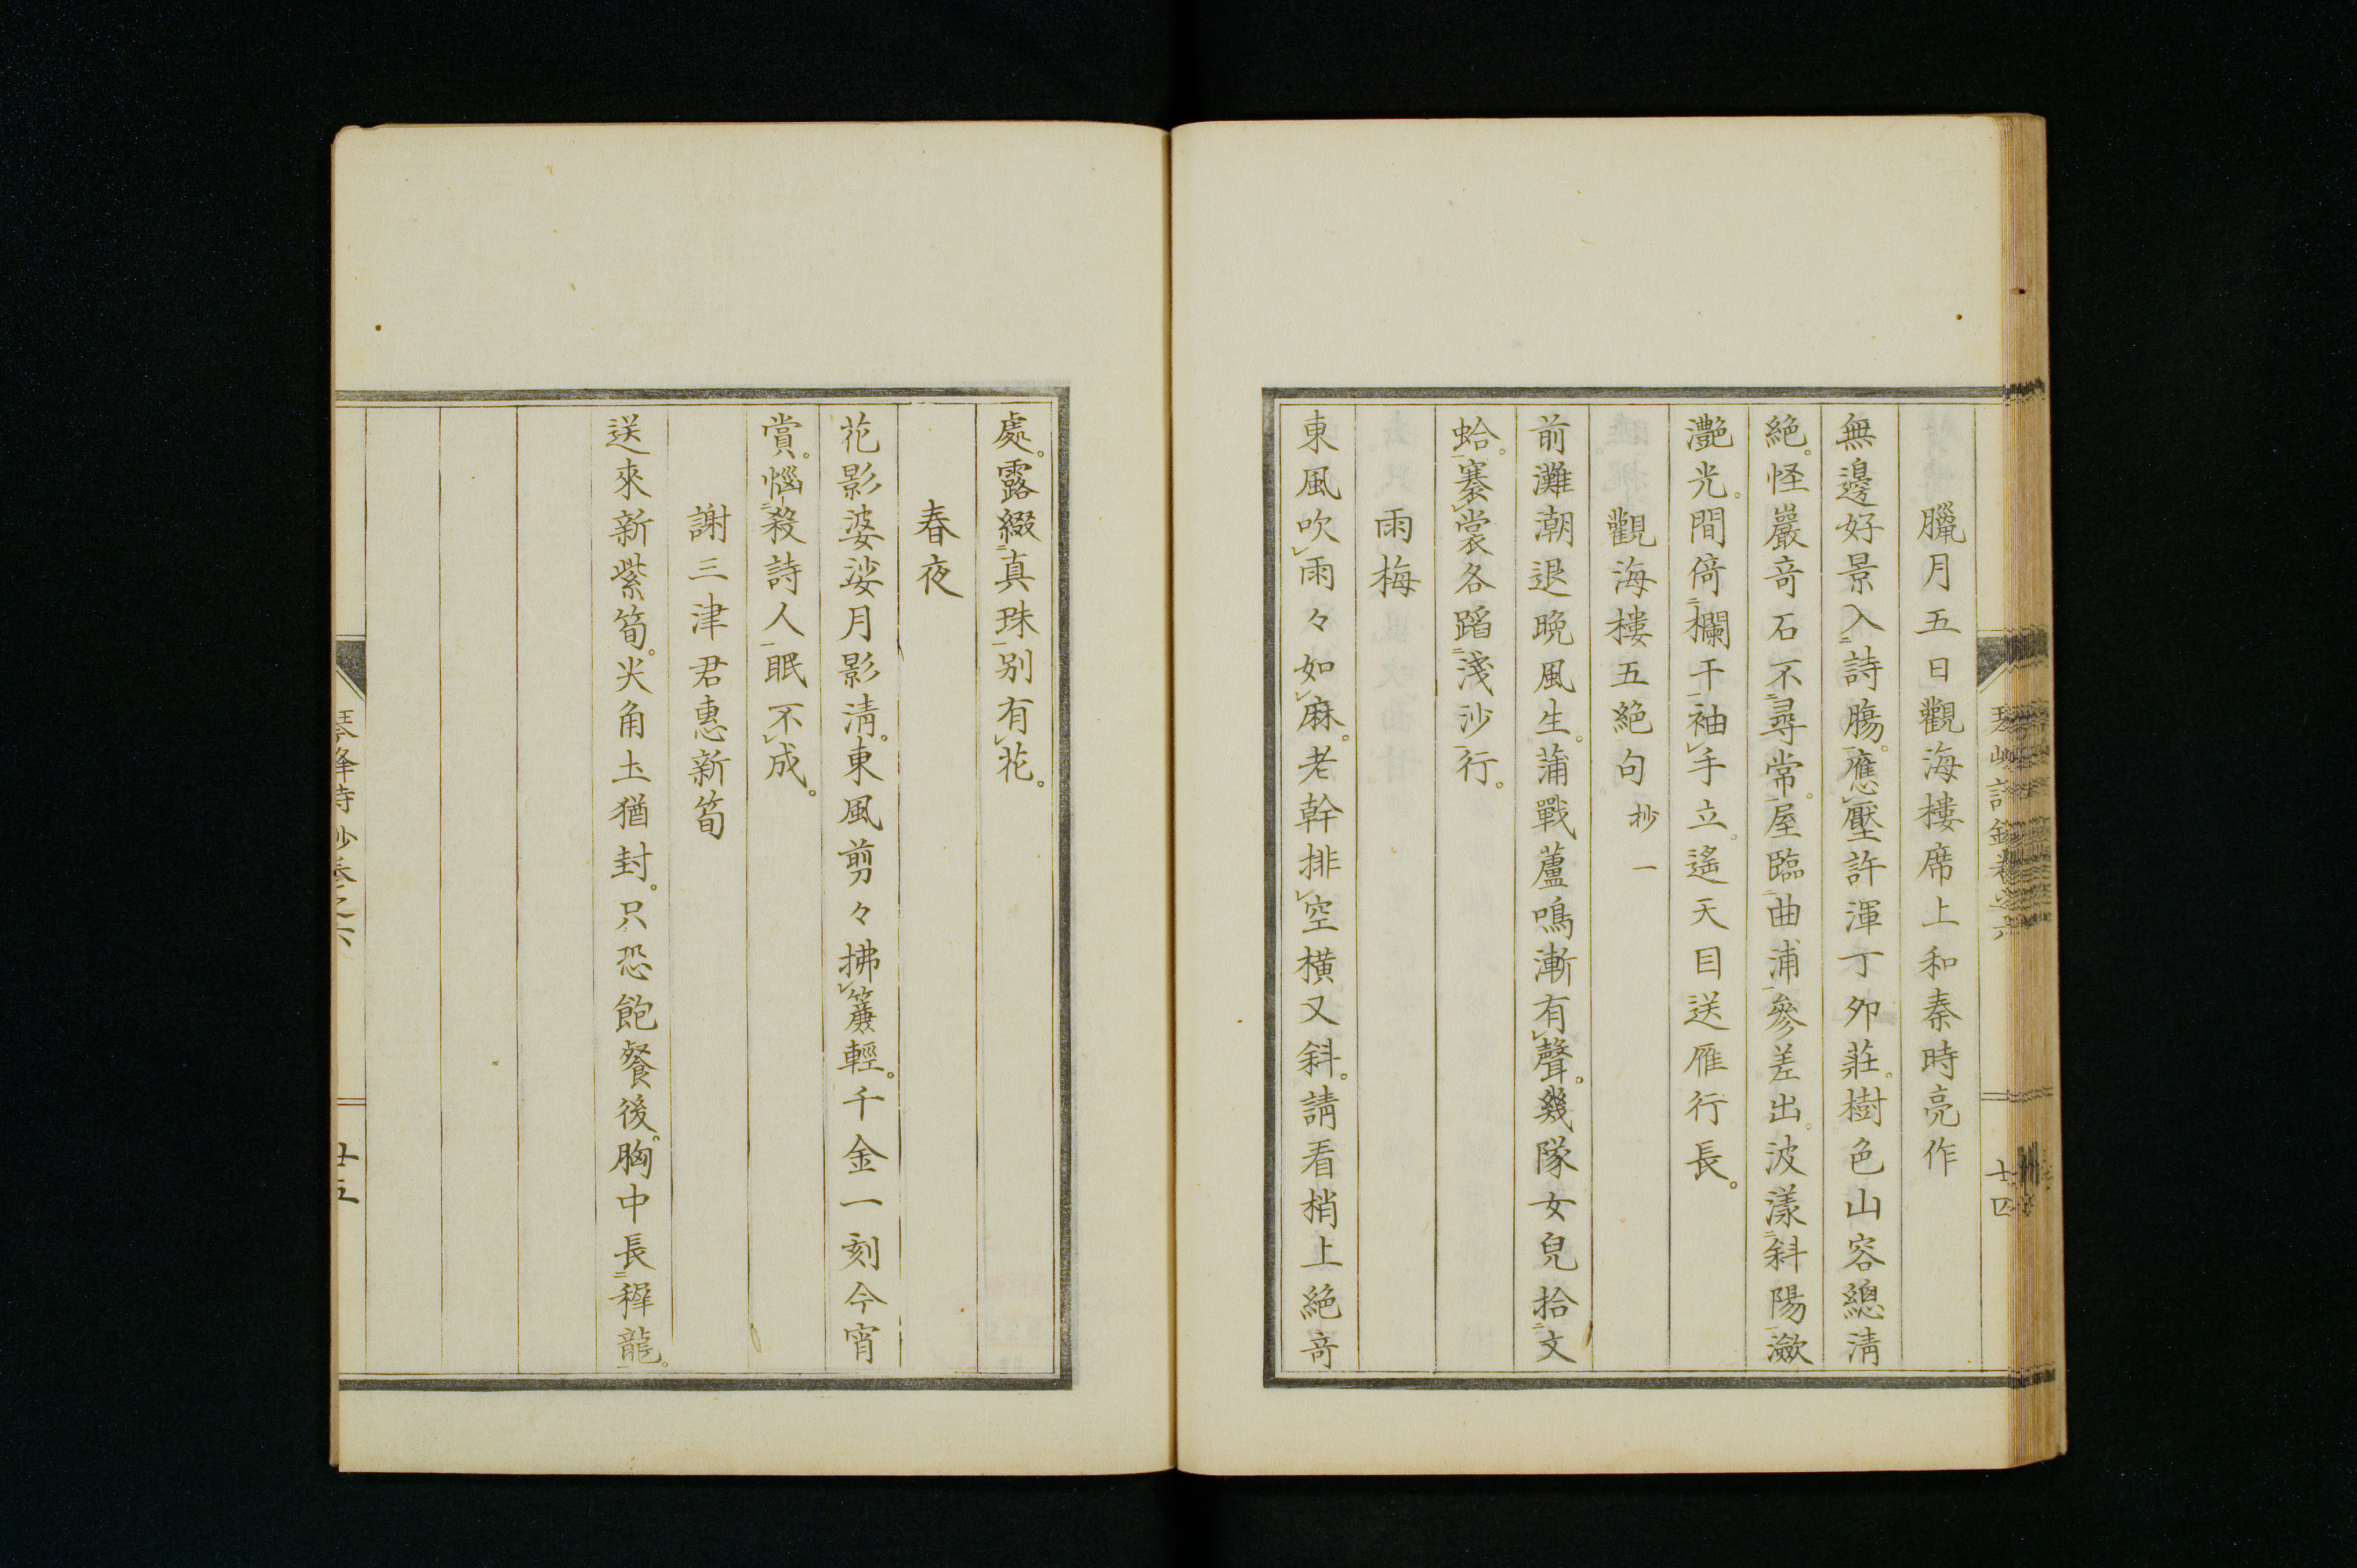 臘月五日觀海樓席上和秦時亮作
無邊好景入詩腸。應壓許渾丁卯莊。樹色山容總淸
絶。怪巖奇石不尋常。屋臨曲浦參差出。波漾斜陽瀲
灔光。間倚欄干袖手立。遙天目送雁行長。
觀海樓五絶句 抄一
前灘潮退晩風生。蒲戰蘆鳴漸有聲。幾隊女兒拾文
蛤。褰裳各蹈淺沙行。
雨梅
東風吹雨々如麻。老幹排空橫又斜。請看梢上絶奇
處。露綴真珠别有花。
春夜
花影婆娑月影淸。東風剪々拂簾輕。千金一刻今宵
賞。惱殺詩人眠不成。
謝三津君惠新筍
送來新紫筍。尖角土猶封。只恐飽餐後。胸中長穉龍。
琴峰詩抄卷之六
廿五